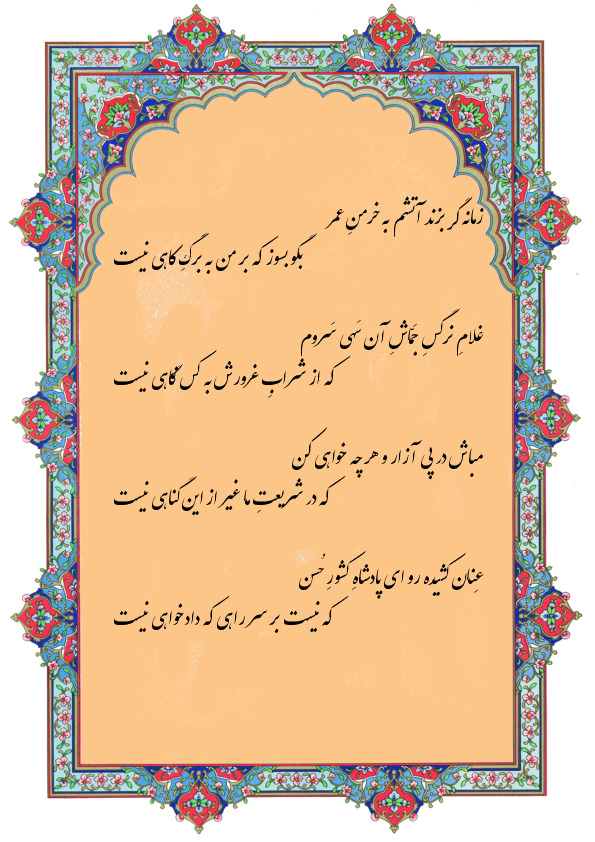 زمانه گر بزند آتشم به خرمنِ عمر
بگو بسوز که بر من به برگِ کاهی نیست
غلامِ نرگسِ جمّاشِ آن سَهی سَروم
که از شرابِ غرورش به کس نگاهی نیست
مباش در پی آزار و هر چه خواهی کن
که در شریعتِ ما غیر از این گناهی نیست
عِنان کشیده رو ای پادشاهِ کشورِ حُسن
که نیست بر سرِ راهی که دادخواهی نیست